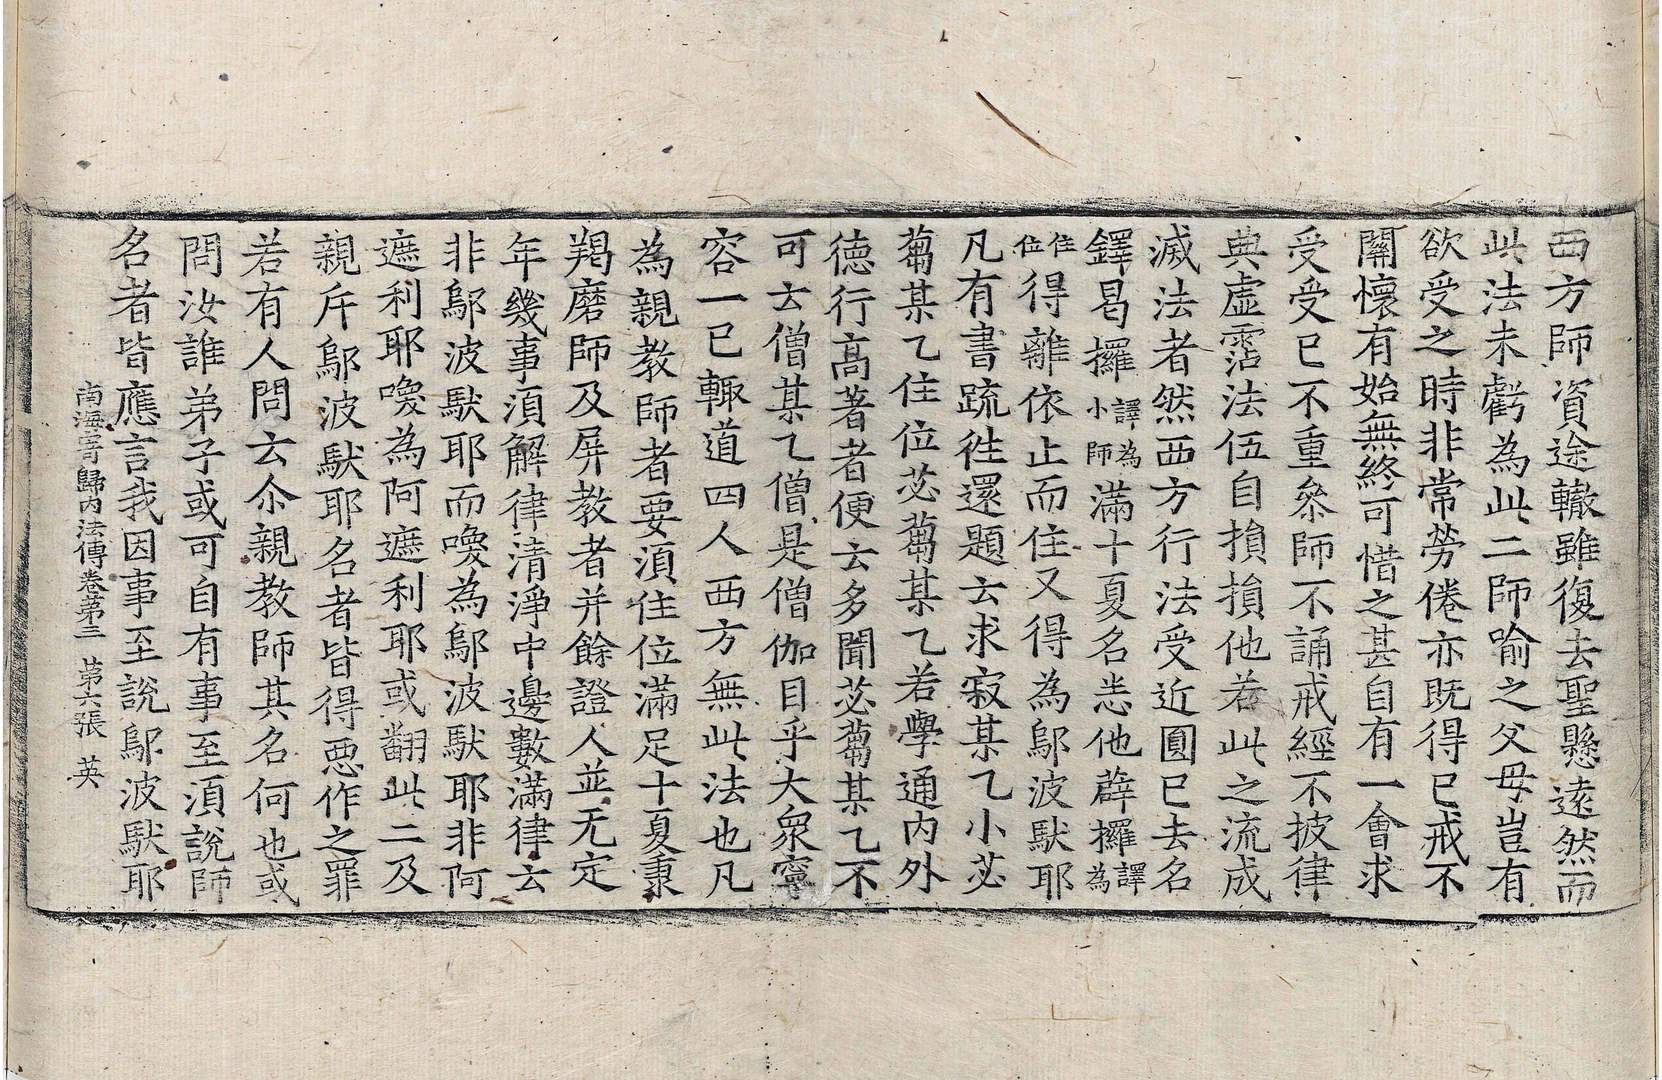 西方師資途轍雖復去聖懸遠然而
此法未虧為此二師喻之父母豈有
欲受之時非常勞倦亦既得已戒不
關懷有始無終可惜之甚自有一會求
受受已不重叅師不誦戒經不披律
典虛霑法伍自損損他若此之流成
滅法者然西方行法受近圓已去名
鐸曷攞譯為小師滿十夏名悉他薜攞譯為
住位得離依止而住又得為鄔波馱耶
凡有書疏往還題云求寂某乙小苾
蒭某乙住位苾蒭某乙若學通內外
德行高著者便云多聞苾蒭某乙不
可云僧某乙僧是僧伽目乎大衆寧
容一已輙道四人西方無此法也凡
為親教師者要須住位滿足十夏秉
羯磨師及屏教者并餘證人並无定
年幾事須解律清淨中邊數滿律云
非鄔波馱耶而喚為鄔波馱耶非阿
遮利耶喚為阿遮利耶或翻此二及
親斥鄔波馱耶名者皆得惡作之罪
若有人問云尒親教師其名何也或
問汝誰弟子或可自有事至須說師
名者皆應言我因事至說鄔波馱耶
南海寄歸內法傳卷第三　第六張　英